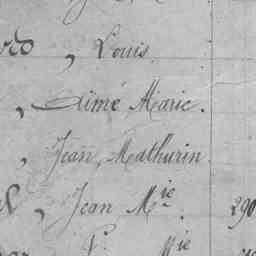 , Louis.
, Aimé Marie.
, Jean Mathurin.
, Jean Mie. 290
Mie